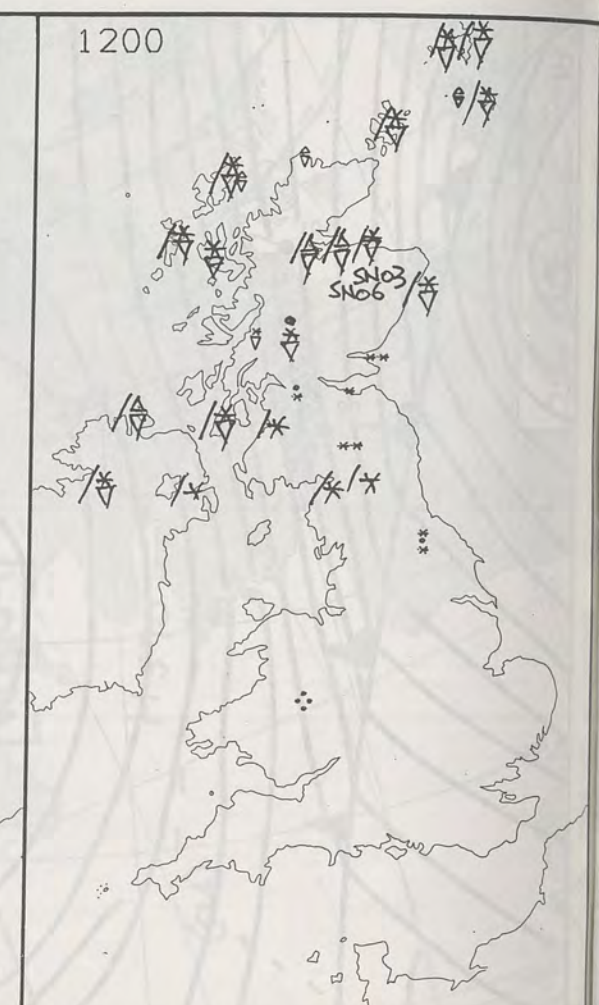 1200
SN03
SN06